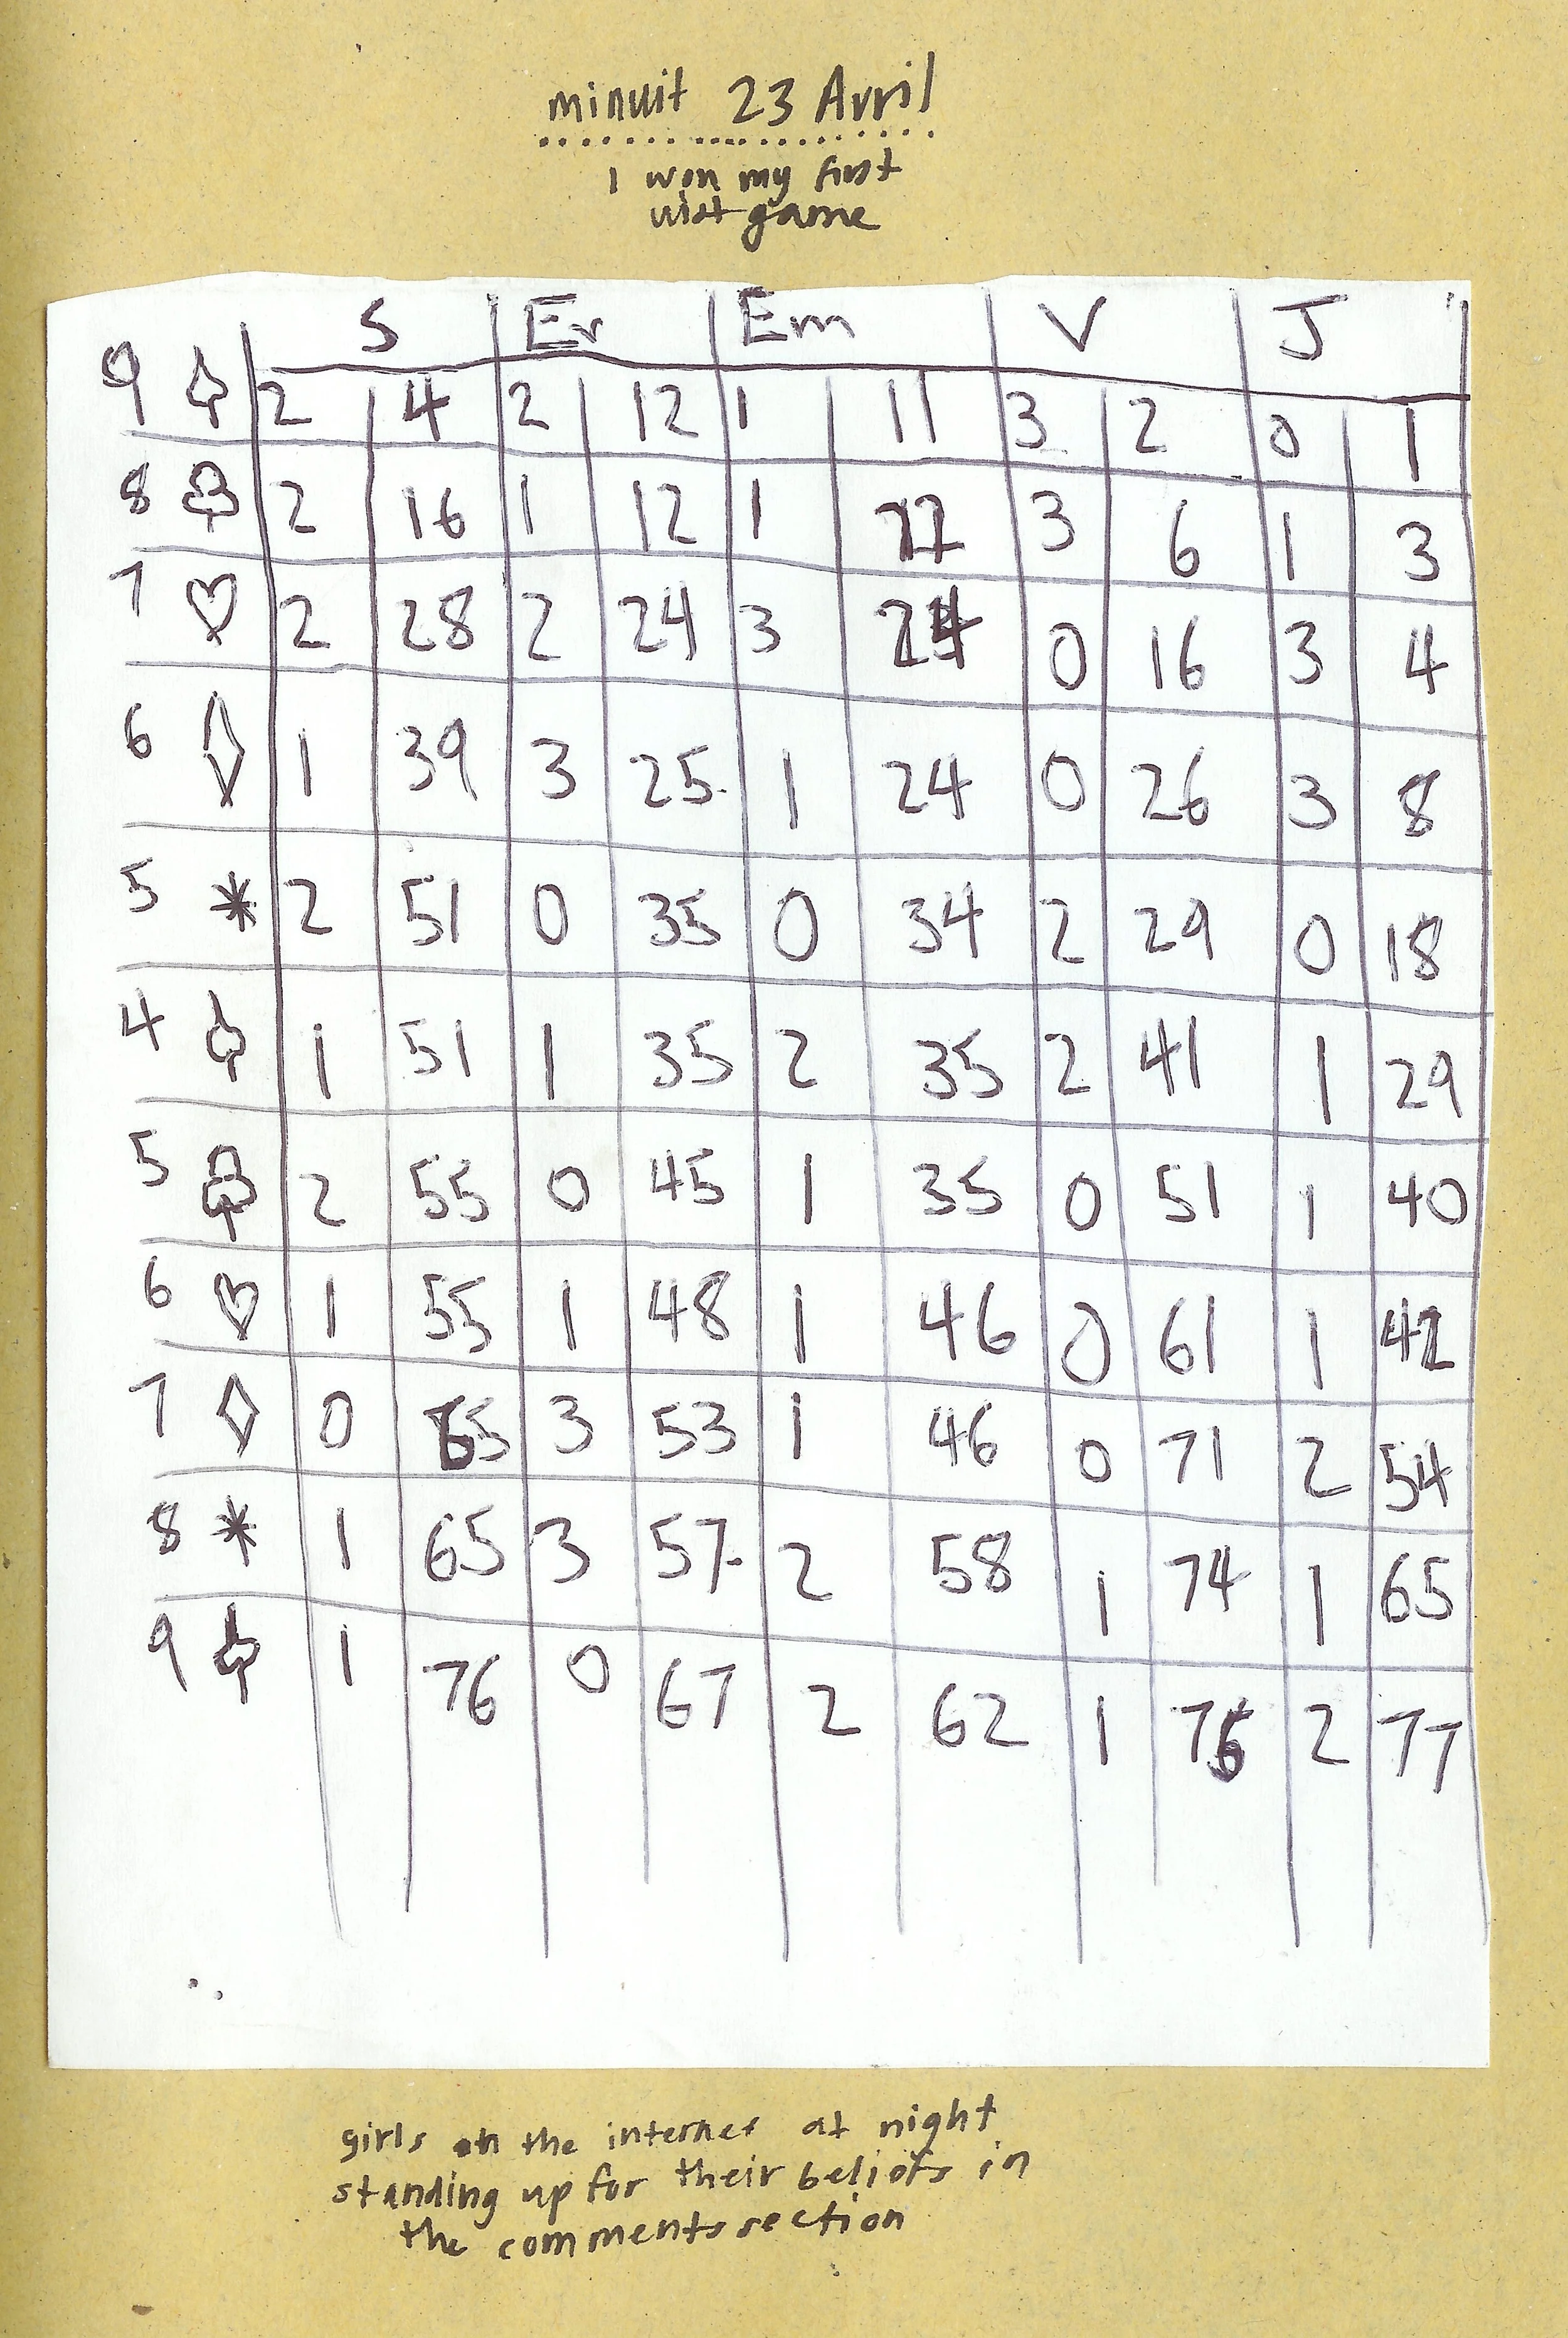 minuit 23 Avril
I won my first
wist game
S Er Em V J
9 ♤ 2 4 2 12 1 11 3 2 0 1
8 ♧ 2 16 1 12 1 3 6 1 3
7 ♡ 2 28 2 24 3 24 0 16 3 4
6 ♢ 1 39 3 25 1 24 0 26 3 8
5 * 2 51 0 35 0 34 2 29 0 18
4 ♤ 1 51 1 35 2 35 2 41 1 29
5 ♧ 2 55 0 45 1 35 0 51 1 40
6 ♡ 1 55 1 48 1 46 0 61 1 42
7 ♢ 0 65 3 53 1 46 0 71 2 54
8 * 1 65 3 57 2 58 1 74 1 65
9 ♤ 1 76 0 67 2 62 1 76 2 77
girls on the internet at night
standing up for their beliefs in
the comments section